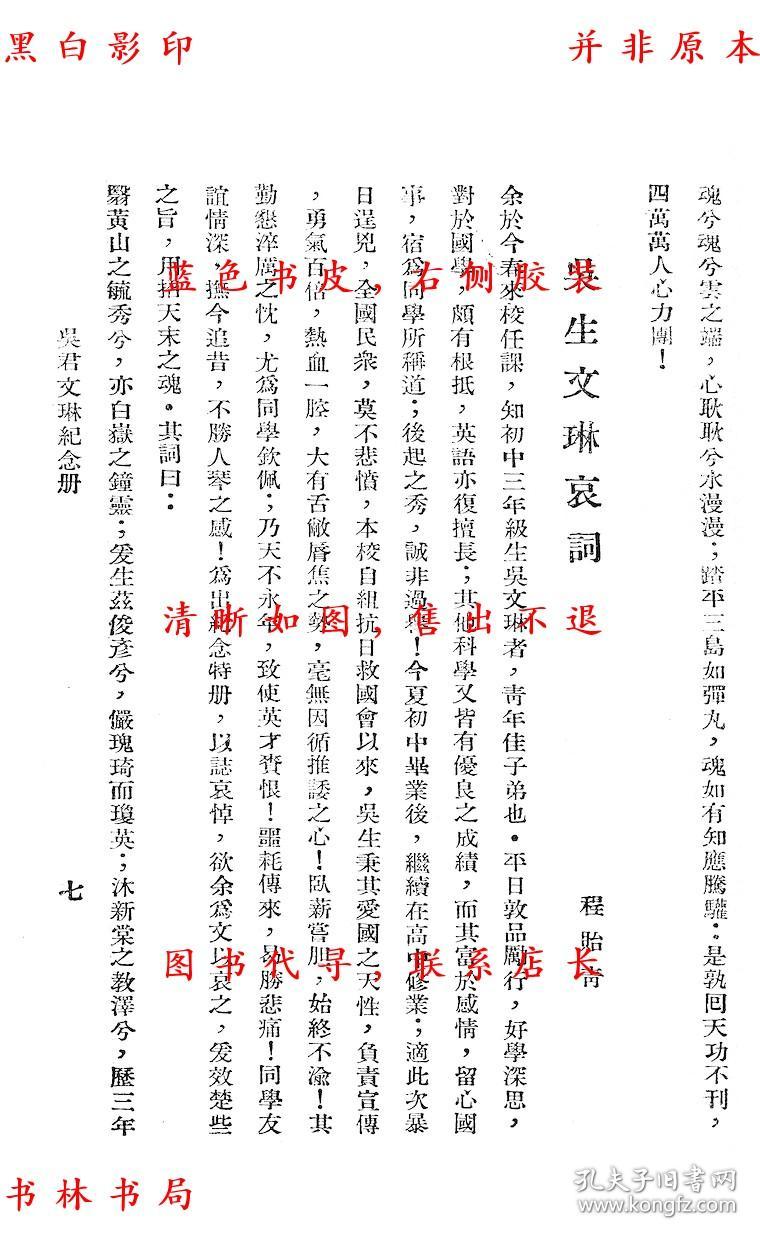 黑白影印
并非原本
魂兮魂兮雲之端，心耿耿兮水漫漫；踏平三島如彈丸，魂如有知應騰驩：是孰回天功不刊，
四萬萬人心力團！
吳生文琳哀詞
程貽青
余於今春來校任課，知初中三年級生吳文琳者，靑年佳子弟也。平日敦品勵行，好學深思，
對於國學，頗有根抵，英語亦復擅長；其他科學又皆有優良之成績，而其富於感情，留心國
事，宿爲同學所稱道；後起之秀，誠非過譽！今夏初中畢業後，繼續在高中修業；適此次暴
日逞兇，全國民衆，莫不悲憤，本校自組抗日救國會以來，吳生秉其愛國之天性，負責宣傳
，勇氣百倍，熱血一腔，大有舌敝脣焦之勢，毫無因循推諉之心！臥薪嘗胆，始終不渝！其
勤懇淬厲之忱，尤爲同學欽佩；乃天不永年，致使英才賫恨！噩耗傳來，曷勝悲痛！同學友
誼情深，撫今追昔，不勝人琴之感！爲出紀念特册，以誌哀悼，欲余爲文以哀之，爰效楚些
之旨，用招天末之魂。其詞曰：
翳黃山之毓秀兮，亦白嶽之鐘靈；爰生茲俊彥兮，儼瑰琦而瓊英；沐新棠之敎澤兮，歷三年
吳君文琳紀念册
七
蓝色书皮，右侧胶装
清晰如图，售出不退
图书代寻，联系店长
书林书局
孔夫子旧书网
www.kongfz.com